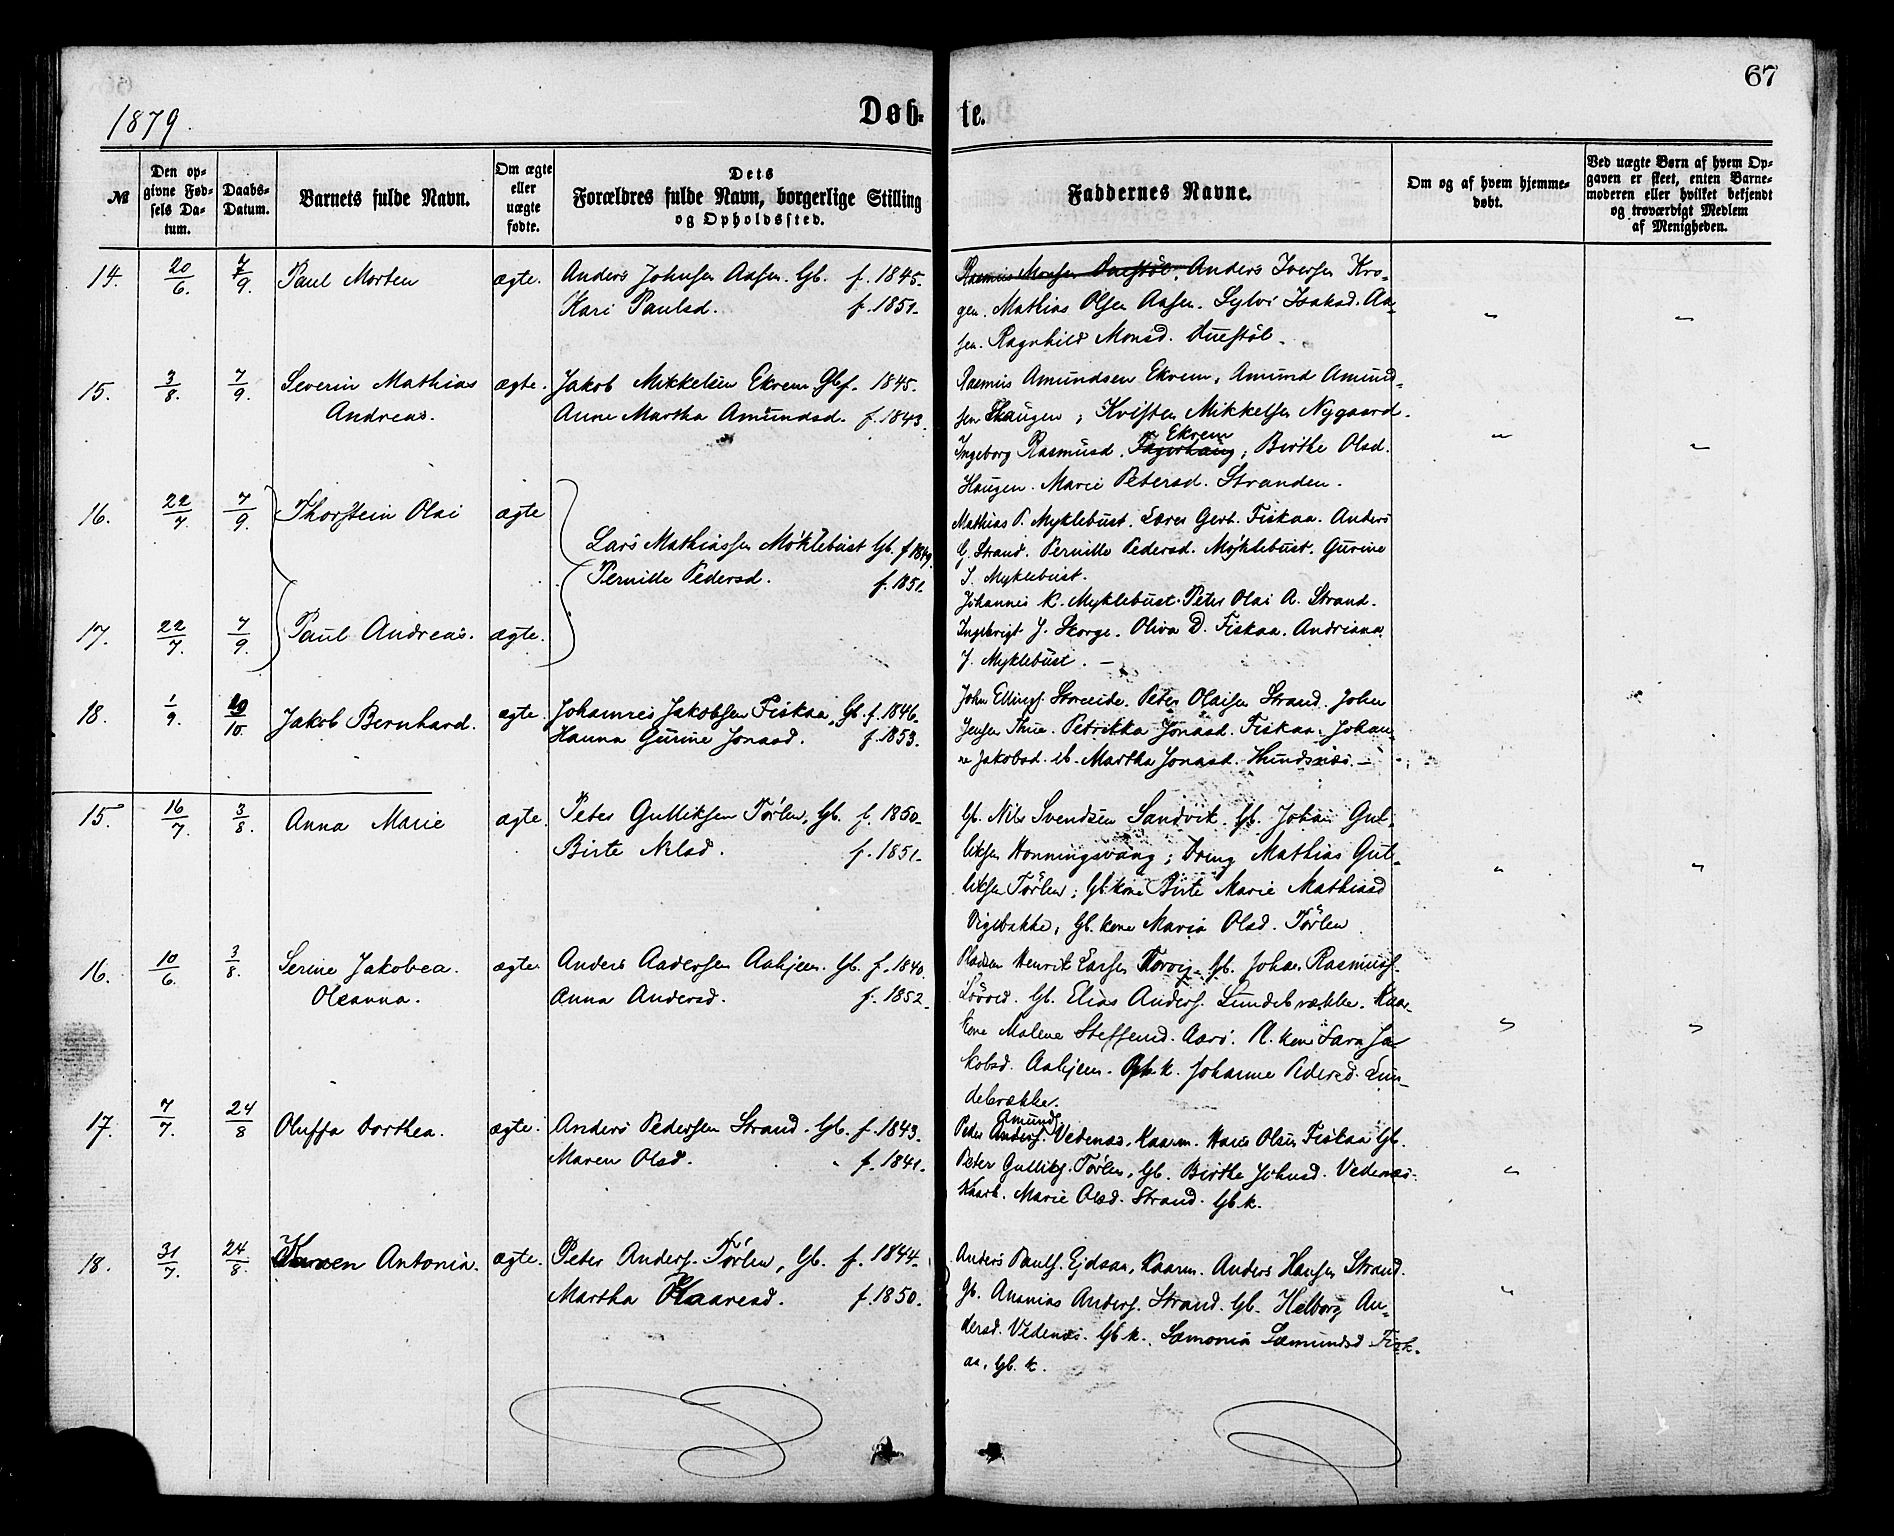 67
1879.
Døb-te.
№
Den opgivne Fødsels Datum.
Daabs-Datum.
Barnets fulde Navn.
Om ægte eller uægte fødte.
Dets Forældres fulde Navn, borgerlige Stilling og Opholdssted.
Faddernes Navne.
Om og af hvem hjemmedøbt.
Ved uægte Børn af hvem Opgaven er skeet, enten Barnemoderen eller hvilket bekjendt og troværdigt Medlem af Menigheden.
14. 20/6. 7/9. Paul Morten ægte. Anders Johnsen Aasen. Gb. f. 1845.
Kari Paulsd. f. 1851.
Rasmus Monsen Duestøl, Anders Iversen Kro-
gen. Mathias Olsen Aasen. Sylvi Isaksd. Aa-
sen. Ragnhild Monsd. Duestøl.
15. 3/8. 7/9. Severin Mathias ægte. Jakob Mikkelsen Ekrem Gb f. 1845.
Andreas. Anne Martha Amundsd. f. 1843.
Rasmus Amundsen Ekrem, Amund Amund-
sen Haugen, Kristen Mikkelsen Nygaard.
Ekrem
Ingeborg Rasmusd. Fagerhaug, Birthe Olsd.
Haugen. Marie Petersd. Stranden.
16. 22/7. 7/9. Thorstein Olai ægte
Lars Mathiassen Møklebust Gb. f. 1849.
Pernille Pedersd. f. 1851.
Mathias P. Myklebust. Lars Gert. Fiskaa. Anders
G. Strand. Pernille Pedersd. Møklebust. Gurine
J. Myklebust.
17. 22/7. 7/9. Paul Andreas. ægte.
Johannes K. Myklebust. Peter Olai A. Strand.
Ingebrigt J. Skorge. Oliva D. Fiskaa. Andriana
J. Myklebust. —
18. 1/9. 10/10. Jakob Bernhard. ægte. Johannes Jakobsen Fiskaa, Gb. f. 1846.
Hanna Gurine Jonasd. f. 1853.
John Ellings. Storeide. Peter Olaisen Strand. John
Jensen Thue. Petrikka Jonasd. Fiskaa. Johan-
ne Jakobsd. ib. Martha Jonasd. Hundsnæs. —
15. 16/7. 3/8. Anna Marie ægte. Peter Gulliksen Tørlen, Gb. f. 1850.
Birte Nilsd. f. 1851.
Gb. Nils Svendsen Sandvik. Gb. Johan Gul-
liksen Honningsvaag; Dreng Mathias Gul-
liksen Tørlen; Gb. kone Birte Marie Mathiasd
Vigebakke, Gb. kone Maria Olsd. Tørlen.
16. 10/6. 3/8. Serine Jakobea. ægte. Anders Andersen Aahjem. Gb. f. 1840.
Oleanna. Anna Andersd. f. 1852.
Pladsm Henrik Larsen Korvig. Gb. Johan Rasmuss.
Gb. Elias Anders. Lundebrække. Kaar
kone Malene Steffensd. Aarø. Pl. kone Sara Ja-
kobsd. Aahjem. Gb. k. Johanne Pedersd. Lun-
debrække.
17. 7/7. 24/8 Oluffa Dorthea. ægte. Anders Pedersen Strand. Gb. f. 1843.
Maren Olsd. f. 1841.
Amunds.
Peder Anders. Vedenæs, Kaarm. Hans Olsen Fiskaa Gb.
Peter Gulliks. Tørlen, Gb. Birthe Johnsd. Vedenæs.
Kaark. Marie Olsd. Strand. Gb. k.
18. 31/7. 24/8. Karen Antonia. ægte. Peter Anders. Tørlen, Gb. f. 1844.
Martha Kaaresd. f. 1850.
Anders Pauls. Ejdsaa, Kaarm. Anders Hansen Strand.
Gb. Ananias Anders. Strand. Gb. Helborg An-
dersd. Vedenæs. Gb. k. Lamonia Samundsd Fisk-
aa, Gb. k.